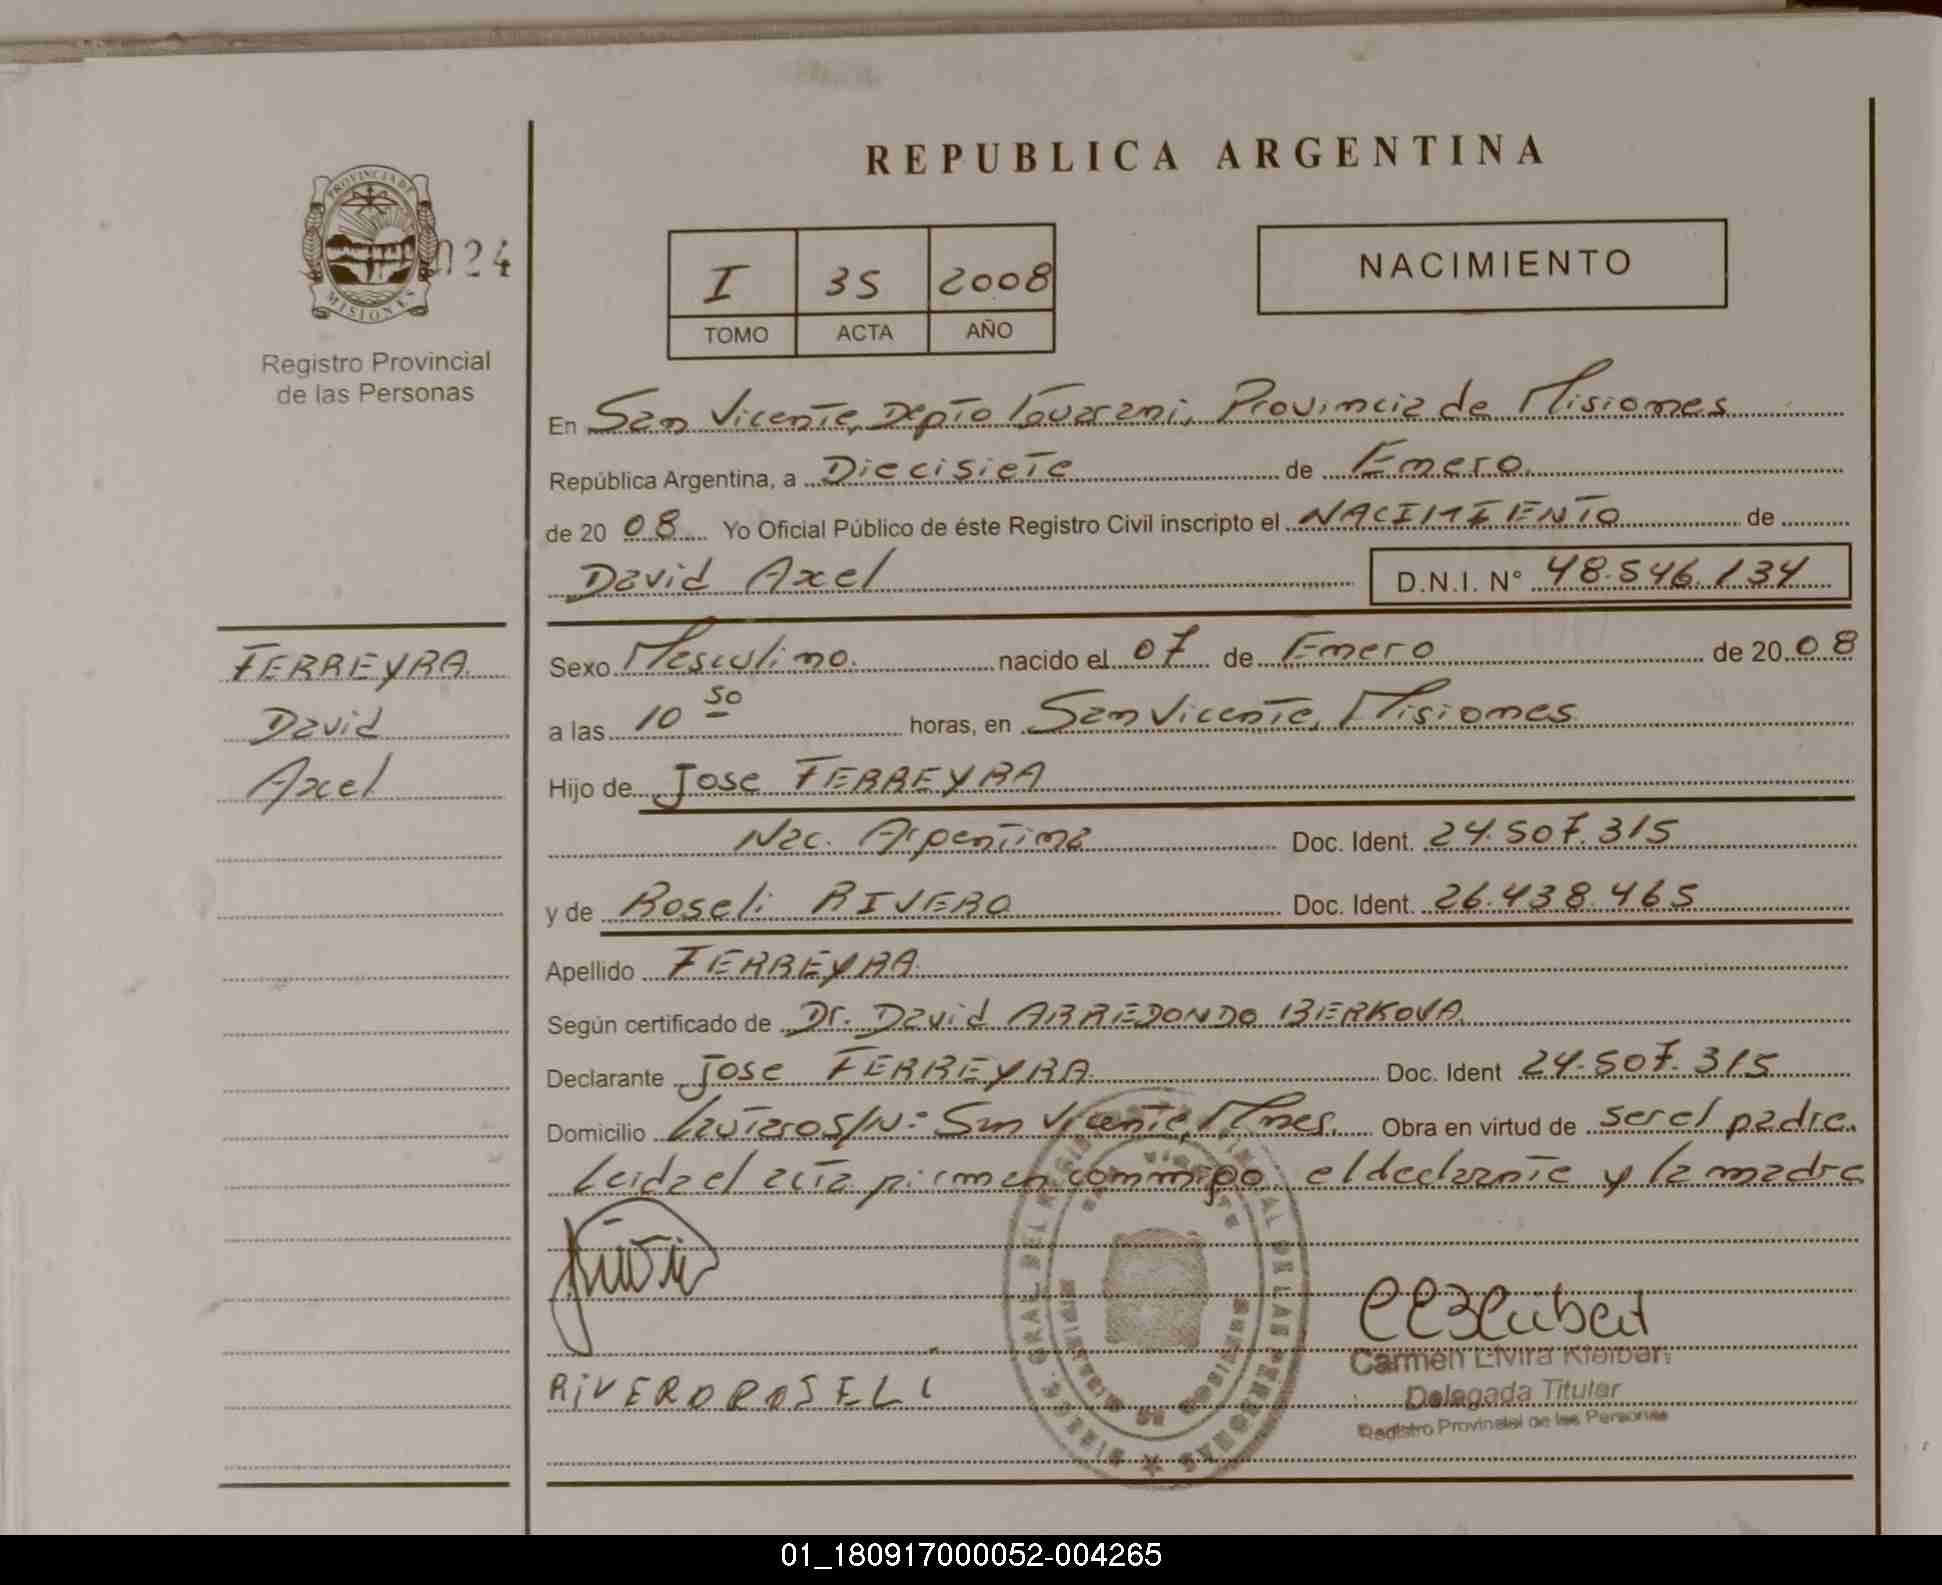 REPUBLICA ARGENTINA
PROVINCIA DE
MISIONES
024
Registro Provincial
de las Personas
I 35 2008
TOMO ACTA AÑO
NACIMIENTO
En San Vicente, Depto Guarani, Provincia de Misiones
República Argentina, a Diecisiete de Enero
de 20 08 Yo Oficial Público de éste Registro Civil inscripto el NACIMIENTO de
David Axel D.N.I. N° 48.546.134
FERREYRA
David
Axel
Sexo Masculino. nacido el 07 de Enero de 20 08
a las 10 50 horas, en San Vicente, Misiones
Hijo de Jose FERREYRA
Nac. Argentina Doc. Ident. 24.507.315
y de Roseli RIVERO Doc. Ident. 26.438.465
Apellido FERREYRA
Según certificado de Dr. David ARREDONDO BERKOVA
Declarante Jose FERREYRA Doc. Ident 24.507.315
Domicilio S/N: San Vicente, Mnes. Obra en virtud de ser el padre.
Leida el acta firman conmigo el declarante y la madre
RIVERO ROSELI
Carmen Elvira
Delegada Titular
Registro Provincial de las Personas
01_180917000052-004265